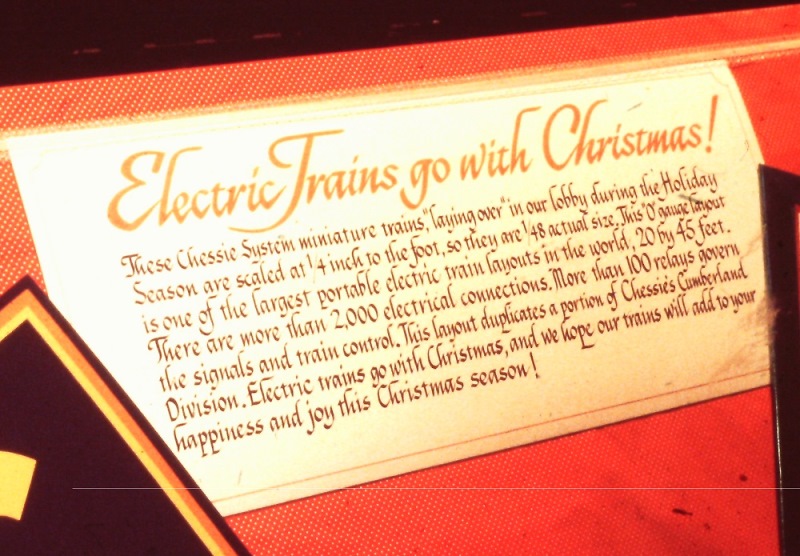 Electric Trains go with Christmas!
These Chessie System miniature trains, "laying over" in our lobby during the Holiday
Season are scaled at 1/4 inch to the foot, so they are 1/48 actual size. This "O" gauge layout
is one of the largest portable electric train layouts in the world, 20 by 45 feet.
There are more than 2,000 electrical connections. More than 100 relays govern
the signals and train control. This layout duplicates a portion of Chessie's Cumberland
Division. Electric trains go with Christmas, and we hope our trains will add to your
happiness and joy this Christmas season!